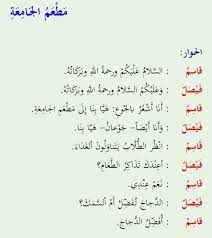 مَطْعَمُ الجَامِعَةِ
الحِوار:
قَاسِمٌ : السَّلامُ عَلَيْكُمْ وَرحمةُ اللهِ وبَرَكَاتُهُ.
فَيْصَلٌ : وَعَلَيْكُمُ السَّلامُ وَرحمةُ اللهِ وبَرَكَاتُهُ.
قَاسِمٌ : أَنَا أَشْعُرُ بِالجُوْعِ: هَيَّا بِنَا إِلَى مَطْعَمِ الجَامِعَةِ.
فَيْصَلٌ : وَأَنَا أَيْضاً- جَوْعَانُ- هَيَّا بِنَا.
قَاسِمٌ : انْظُرِ الطُّلَّابَ يَتَنَاوَلُوْنَ الغَدَاءَ.
فَيْصَلٌ : أَعِنْدَكَ تَذَاكِرُ الطَّعَامِ؟
قَاسِمٌ : نَعَمْ عِنْدِي.
فَيْصَلٌ : الدَّجَاجَ تُفَضِّلُ أَمِ السَّمَكَ؟
قَاسِمٌ : أُفَضِّلُ الدَّجَاجَ.